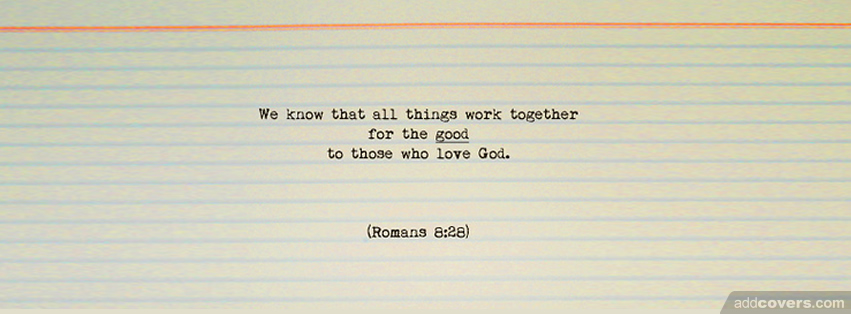 We know that all things work together
for the good
to those who love God.
(Romans 8:28)
addcovers.com